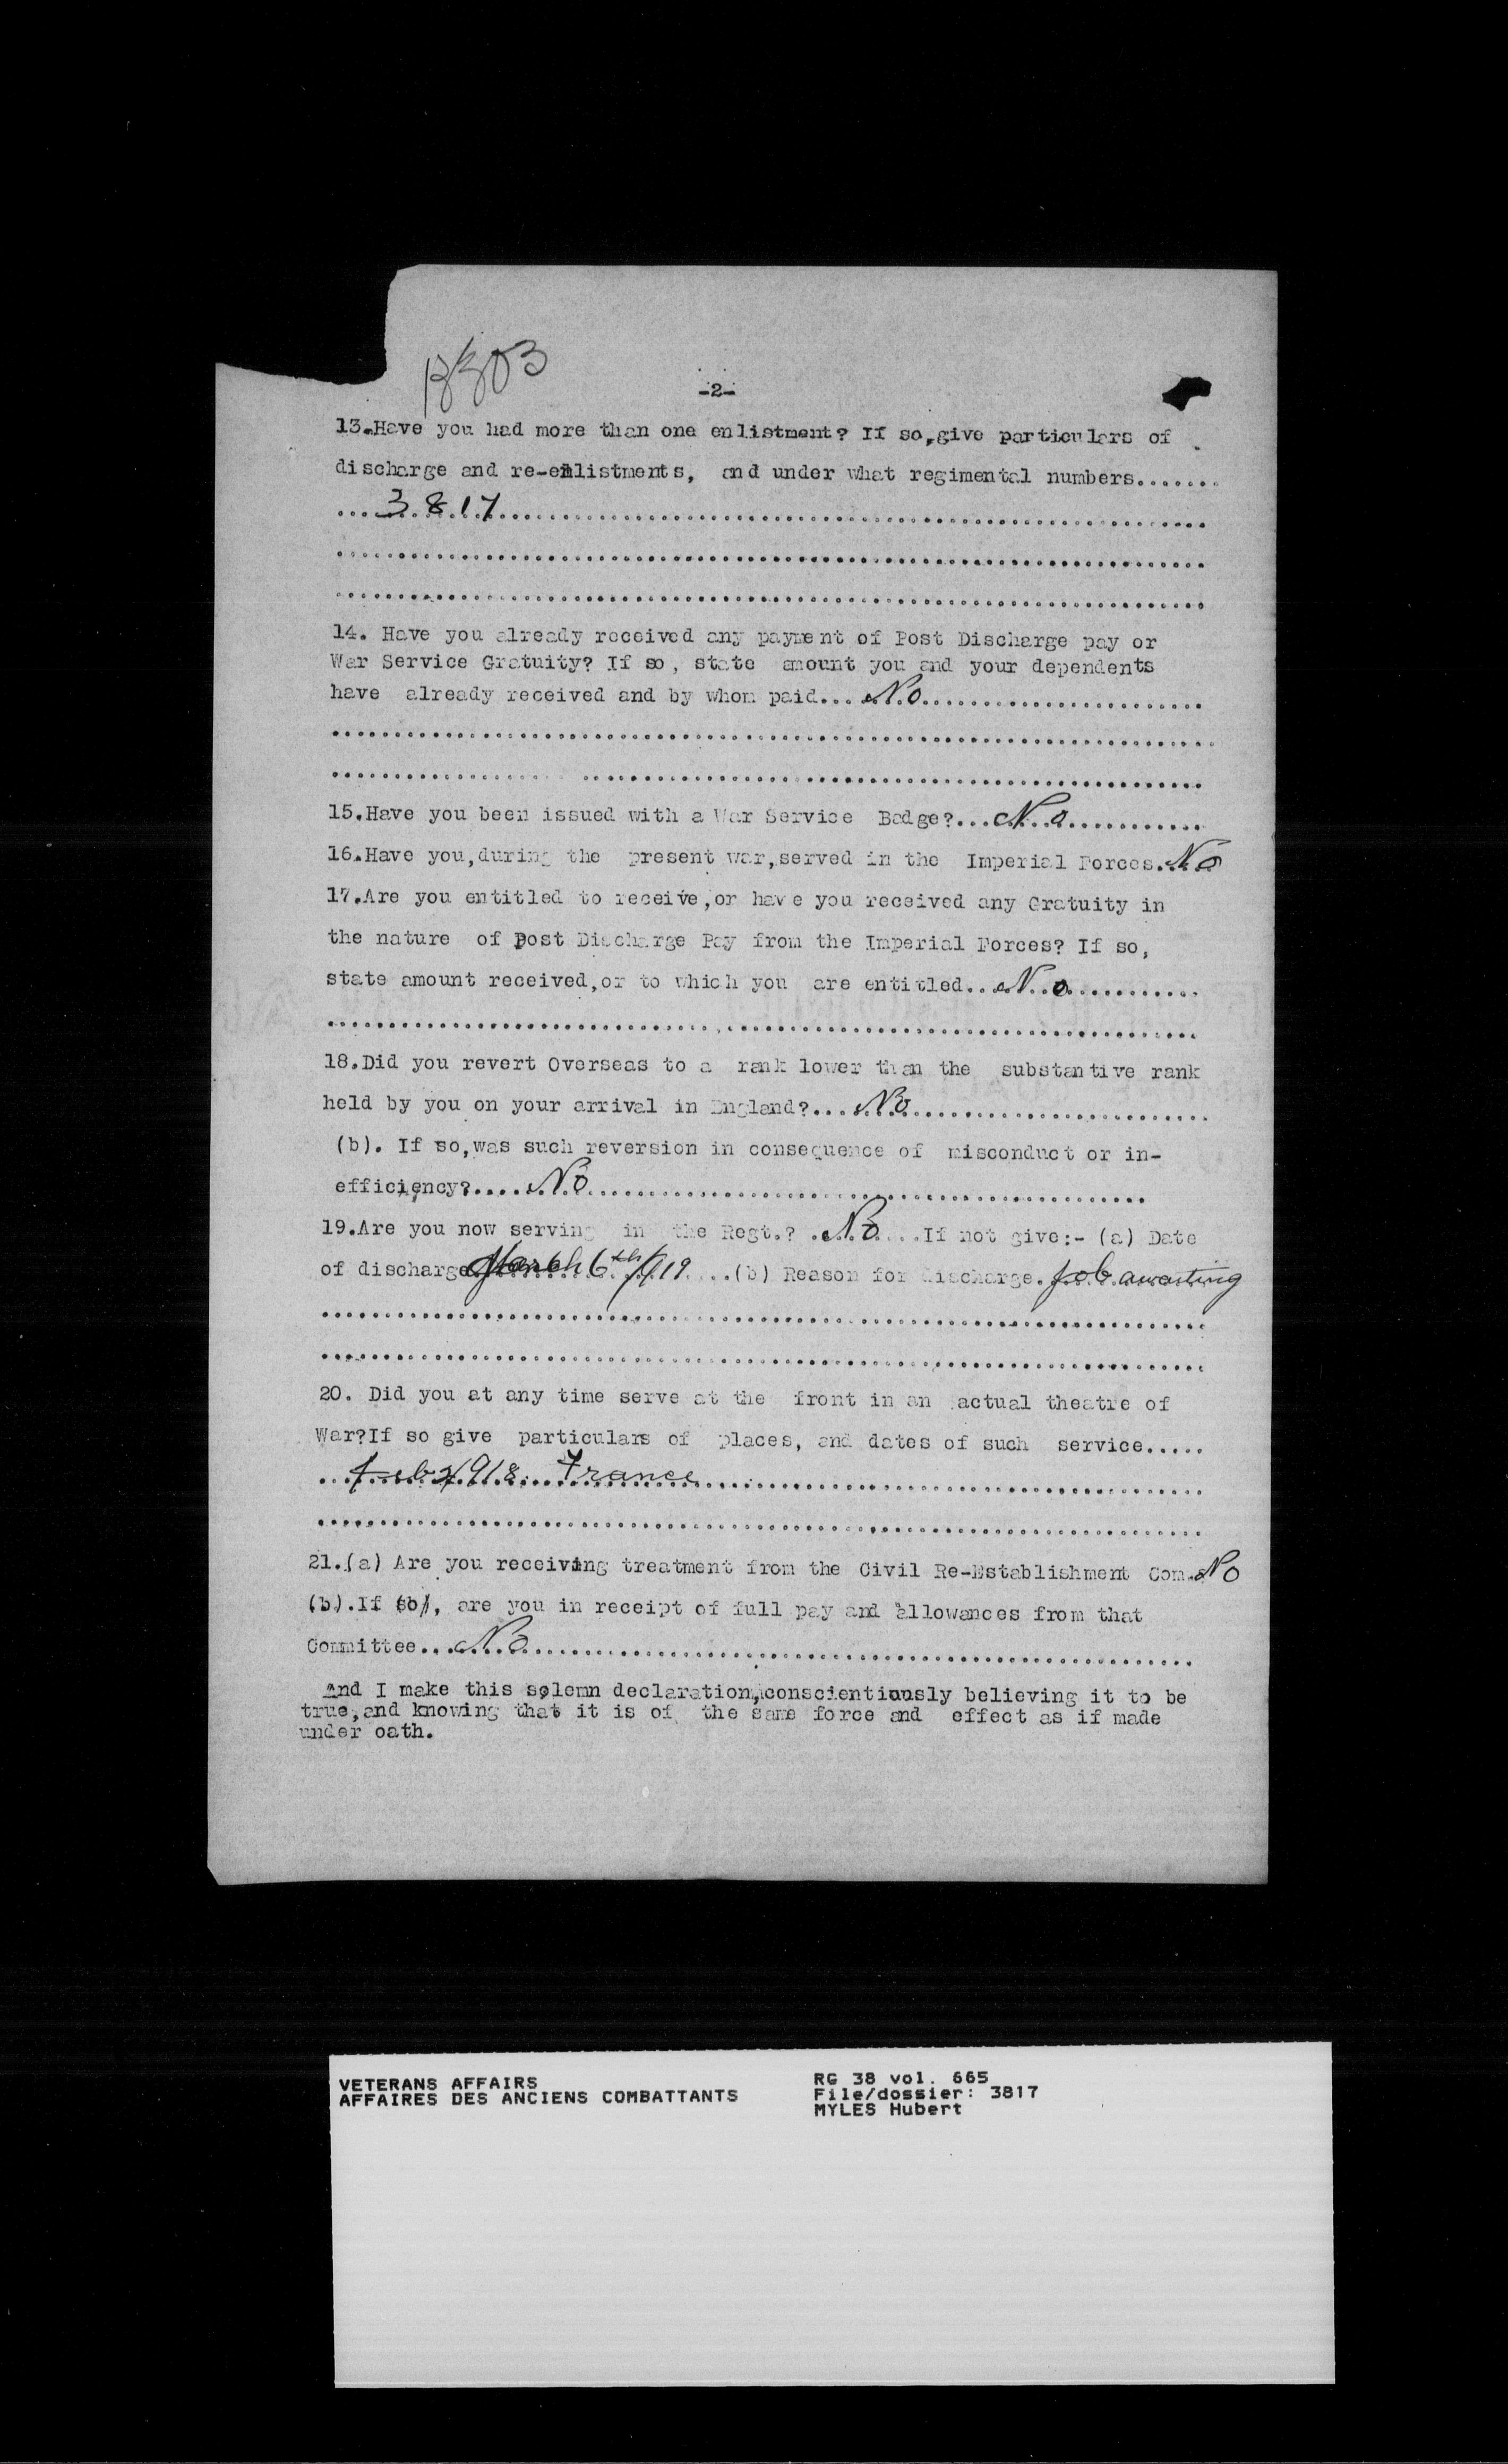 -2-
13.Have you had more than one enlistment? If so,give particulars of
discharge and re-enlistments, and under what regimental numbers.......
....3817....
14. Have you already received any payment of Post Discharge pay or
War Service Gratuity? If so, state amount you and your dependents
have already received and by whom paid... No....
15.Have you been issued with a War Service Badge?...No....
16.Have you,during the present war,served in the Imperial Forces. No
17.Are you entitled to receive,or have you received any Gratuity in
the nature of Post Discharge Pay from the Imperial Forces? If so,
state amount received,or to which you are entitled...No....
18.Did you revert Overseas to a rank lower than the substantive rank
held by you on your arrival in England?....No....
(b). If so,was such reversion in consequence of misconduct or in-
efficiency?.....No....
19.Are you now serving in the Regt.? .No....If not give:- (a) Date
of discharge March 6th/1919....(b) Reason for discharge. Job awaiting
20. Did you at any time serve at the front in an actual theatre of
War?If so give particulars of places, and dates of such service.....
...Feb 1918. France....
21.(a) Are you receiving treatment from the Civil Re-Establishment Com. No
(b).If so, are you in receipt of full pay and allowances from that
Committee...No....
And I make this solemn declaration,conscientiously believing it to be
true,and knowing that it is of the same force and effect as if made
under oath.
VETERANS AFFAIRS
AFFAIRES DES ANCIENS COMBATTANTS
RG 38 vol. 665
File/dossier: 3817
MYLES Hubert